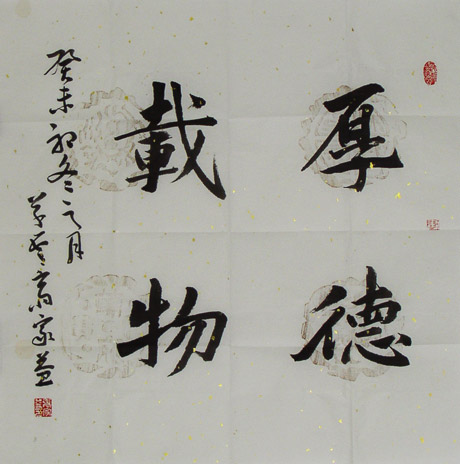 厚德
載物
癸未初冬之月